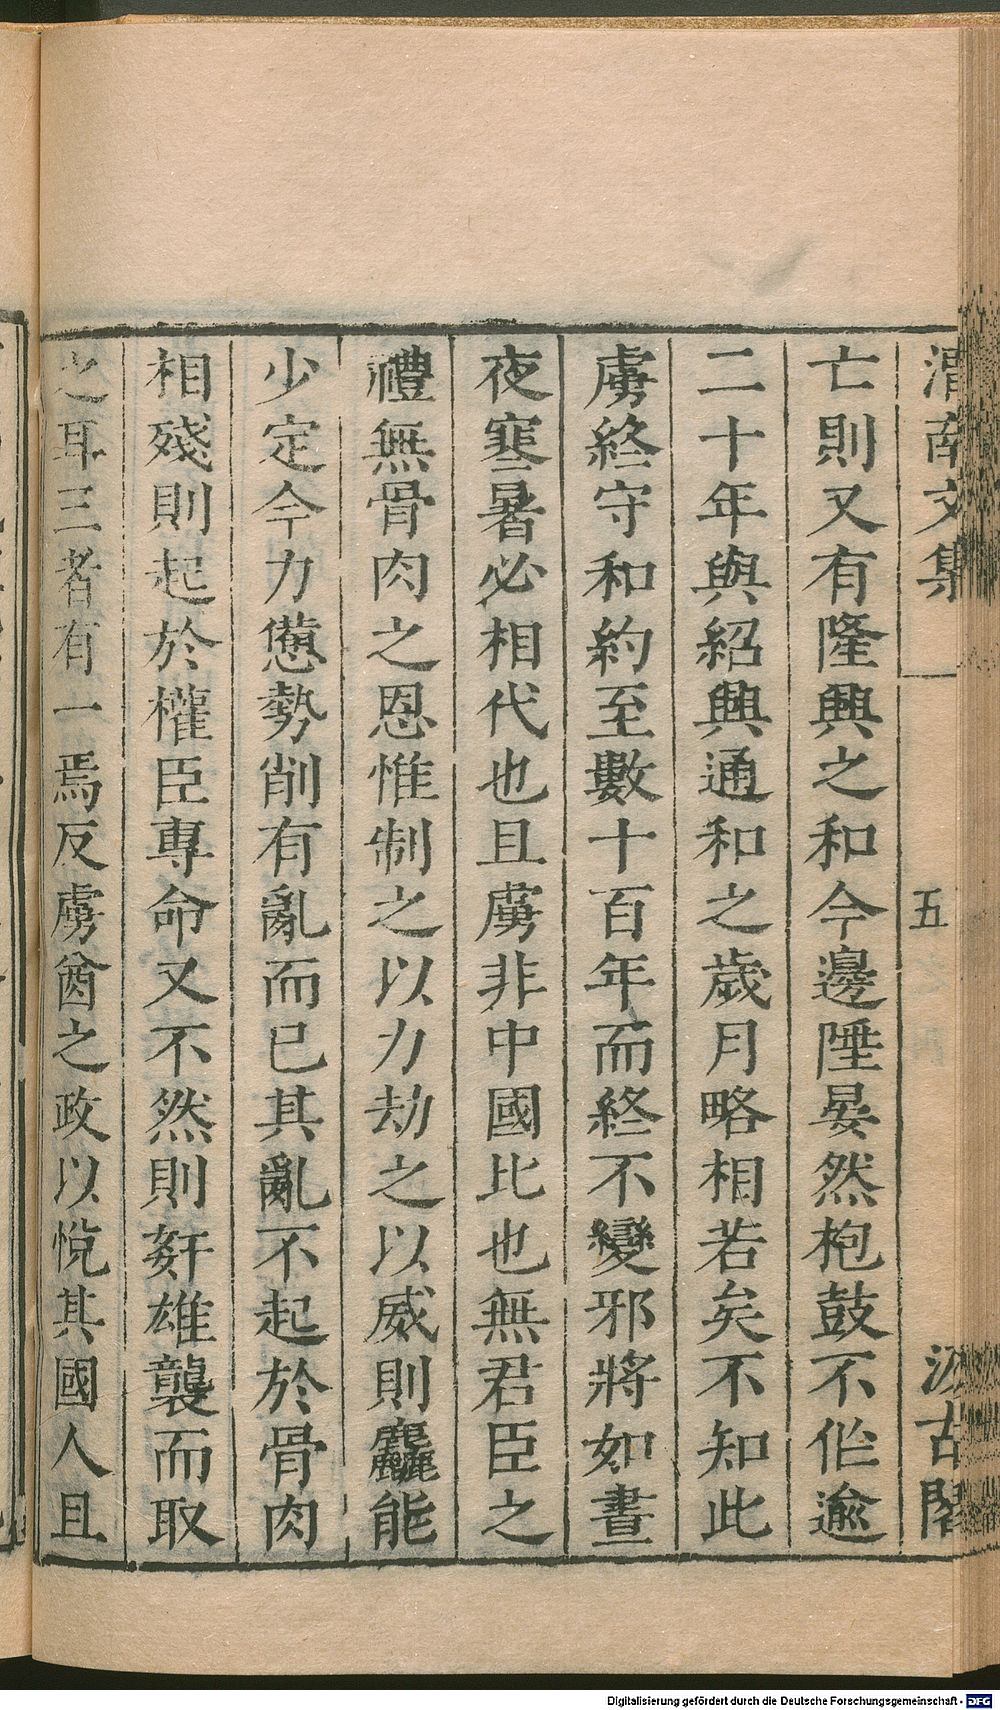 渭南文集
五
汲古閣
亡則又有隆興之和今邊陲晏然枹鼓不作逾
二十年與紹興通和之歲月略相若矣不知此
虜終守和約至數十百年而終不變邪將如晝
夜寒暑必相代也且虜非中國比也無君臣之
禮無骨肉之恩惟制之以力劫之以威則麤能
少定今力憊勢削有亂而已其亂不起於骨肉
相殘則起於權臣專命又不然則姧雄襲而取
之耳三者有一焉反虜酋之政以悅其國人且
Digitalisierung gefördert durch die Deutsche Forschungsgemeinschaft - DFG